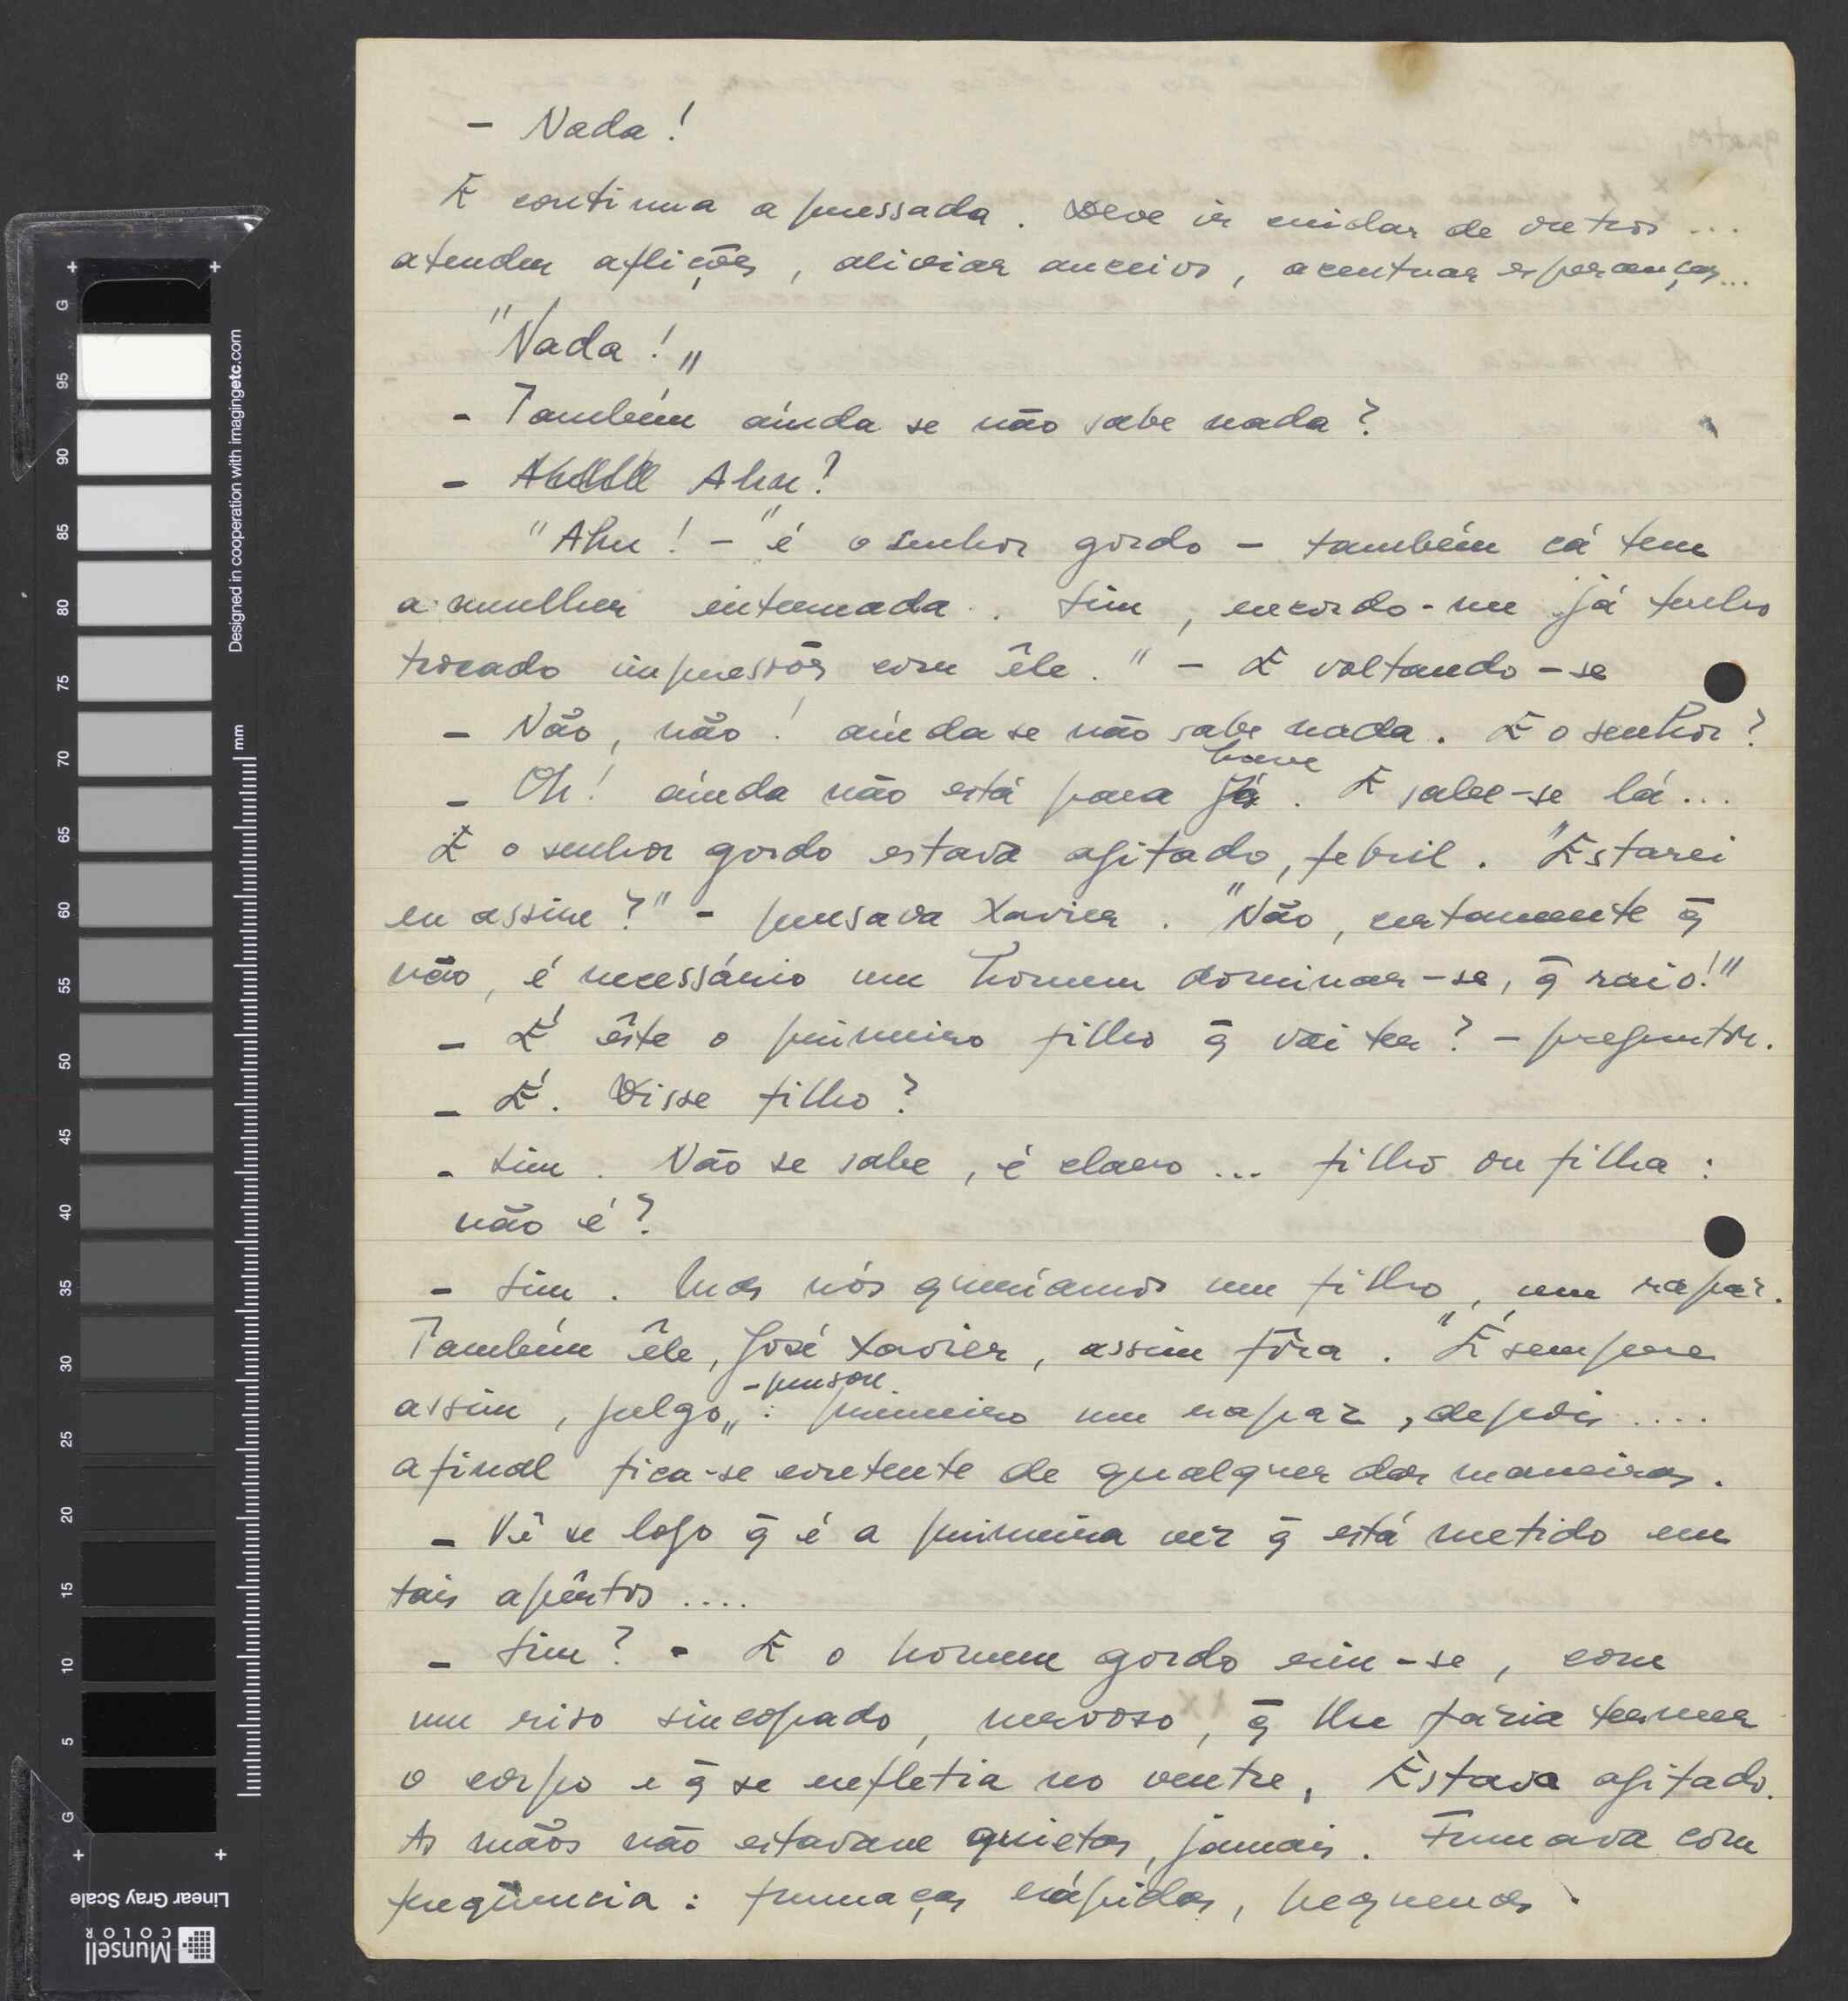 - Nada!
E continua apressada. Deve ir cuidar de outros...
atender aflições, aliviar anceios, acentuar esperanças...
"Nada!„
- Também aínda se não sabe nada?
- Ahn?
"Ahn! -" é o senhor gordo - também cá tem
a mulher internada. Sim, recordo-me já tenho
trocado impressões com êle." - E voltando-se
- Não, não! aínda se não sabe nada. E o senhor?
- Oh! aínda não está para já. E sabe-se lá...
E o senhor gordo estava agitado, febril. "Estarei
eu assim?" - pensava Xavier. "Não, certamente q̄
não, é necessário um homem dominar-se, q̄ raio!"
- É êste o primeiro filho q̄ vai ter? - preguntou.
- É. Disse filho?
- Sim. Não se sabe, é claro... filho ou filha:
não é?
- Sim. Mas nós queríamos um filho, um rapaz.
Também êle, José Xavier, assim fôra. "É sempre
- pensou
assim, julgo„: primeiro um rapaz, depois....
afinal fica-se contente de qualquer das maneiras.
- Vê se logo q̄ é a primeira vez q̄ está metido em
tais apêrtos....
- Sim? - E o homem gordo riu-se, com
um riso sincopado, nervoso, q̄ lhe fazia tremer
o corpo e q̄ se refletia no ventre. Estava agitado.
As mãos não estavam quietas, jamais. Fumava com
freqüencia: fumaças rápidas, pequenas.
Designed in cooperation with imagingetc.com
mm
G 95 90 85 80 75 70 65 60 55 50 45 40 35 30 25 20 15 10 5 G
Linear Gray Scale
Munsell
COLOR